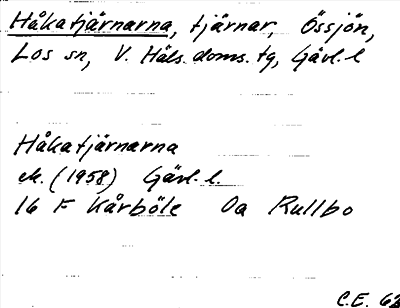 Håkatjärnarna, tjärnar, Össjön,
Los sn, V. Häls. doms. tg, Gävl. l
Håkatjärnarna
ek. (1958) Gävl. l.
16 F Kårböle 0a Rullbo
C.E. 62